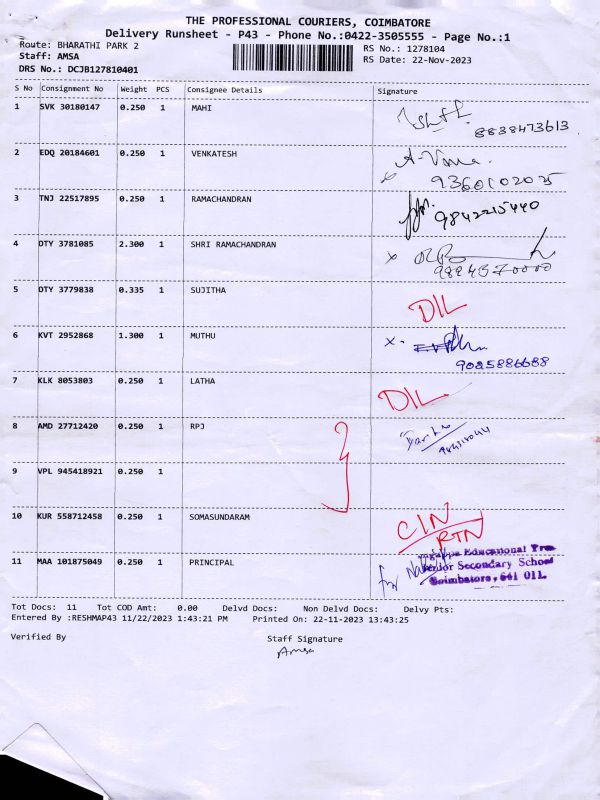 THE PROFESSIONAL COURIERS, COIMBATORE
Delivery Runsheet - P43 - Phone No.:0422-3505555 - Page No.:1
Route: BHARATHI PARK 2 RS No.: 1278104
Staff: AMSA RS Date: 22-Nov-2023
DRS No.: DCJB127810401
S No Consignment No Weight PCS Consignee Details Signature
1 SVK 30180147 0.250 1 MAHI
8838473613
2 EDQ 20184601 0.250 1 VENKATESH
9360102025
3 TNJ 22517895 0.250 1 RAMACHANDRAN 9842215440
4 OTY 3781085 2.300 1 SHRI RAMACHANDRAN
5 OTY 3779838 0.335 1 SUJITHA D/L
6 KVT 2952868 1.300 1 MUTHU
9025886688
7 KLK 8053803 0.250 1 LATHA D/L
8 AMD 27712420 0.250 1 RPJ
9 VPL 945418921 0.250 1
10 KUR 558712458 0.250 1 SOMASUNDARAM C/N
RTN
11 MAA 101875049 0.250 1 PRINCIPAL
Educational
Senior Secondary School
Coimbatore, 641 011.
Tot Docs: 11 Tot COD Amt: 0.00 Delvd Docs: Non Delvd Docs: Delvy Pts:
Entered By :RESHMAP43 11/22/2023 1:43:21 PM Printed On: 22-11-2023 13:43:25
Verified By Staff Signature
Amsa